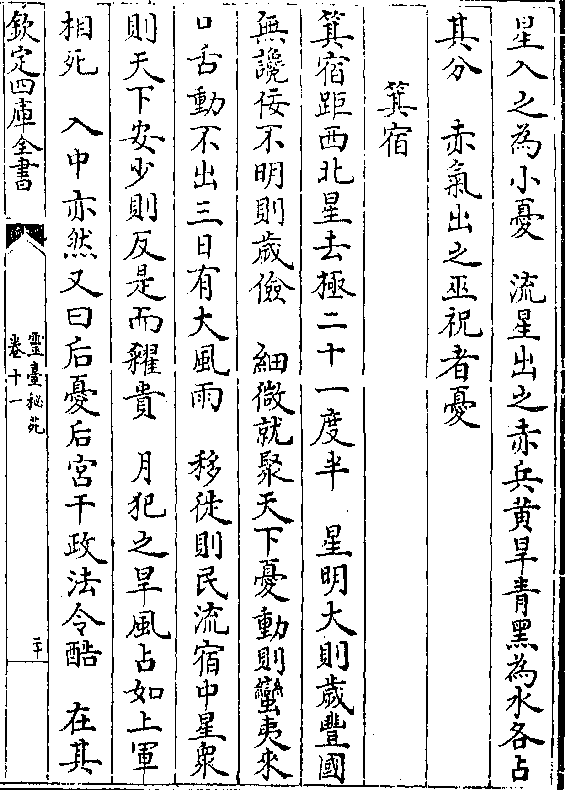 星入之為小憂　流星出之赤兵黄旱青黑為水各占
其分　赤氣出之巫祝者憂
箕宿
箕宿距西北星去極二十一度半　星明大則歲豐國
無讒佞不明則歲儉　細微就聚天下憂動則蠻夷來
口舌動不出三日有大風雨　移徙則民流宿中星衆
則天下安少則反是而糴貴　月犯之旱風占如上軍
相死　入中亦然又曰后憂后宮干政法令酷　在其
欽定四庫全書
靈臺秘苑
卷十一
二十